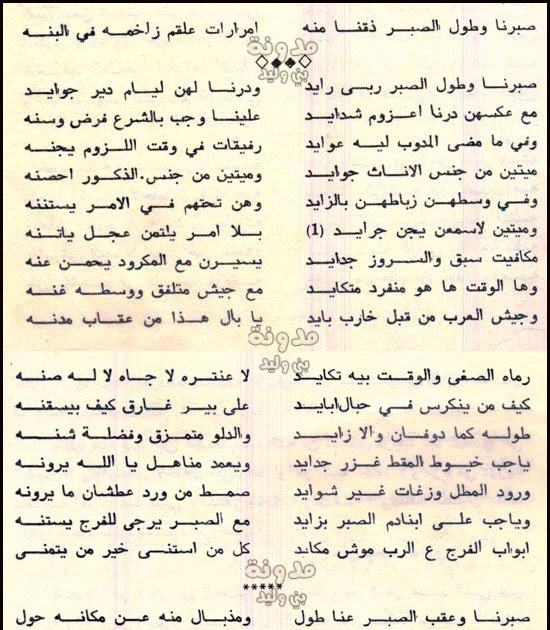 صبرنا وطول الصبر ذقنا منه امرارات علقم زاخمه في البنه
مدونة
بني وليد
صبرنا وطول الصبر ربى رايد ودرنا لهن ليام دير جوايد
مع عكسهن درنا اعزوم شدايد علينا وجب بالشرع فرض وسنه
وفي ما مضى المدوب ليه عوايد رفيقات في وقت اللزوم يجنه
ميتين من جنس الاناث جوايد وميتين من جنس الذكور احصنه
وفي وسطهن زباطهن بالزايد وهن تحتهم في الامر يستننه
وميتين لاسمعن يجن جرايد (1) بلا امر يلتمن عجل ياتنه
مكافيت سبق والسروز جدايد يسيرن مع المكرود يحمن عنه
وها الوقت ها هو منفرد متكايد مع جيش متلفق ووسطه غنه
وجيش العرب من قبل خارب بايد يا بال هذا من عقاب مدنه
مدونة
بني وليد
رماه الصغى والوقت بيه تكايد لا عنتره لا جاه لا له صنه
كيف من ينكرس في حبال ابايد على بير غارق كيف بيسقنه
طوله كما دوفان والا زايد والدلو متمزق وفضلة شنه
ياجب خيوط المقط غزر جدايد ويعمد مناهل يا الله يرونه
ورود المطل وزغات غير شوايد صمط من ورد عطشان ما يرونه
وياجب على ابنادم الصبر بزايد مع الصبر يرجى للفرج يستنه
ابواب الفرج ع الرب موش مكايد كل من استنى خير من يتمنى
مدونة
*****
بني وليد
صبرنا وعقب الصبر عنا طول ومذبال منه عن مكانه حول